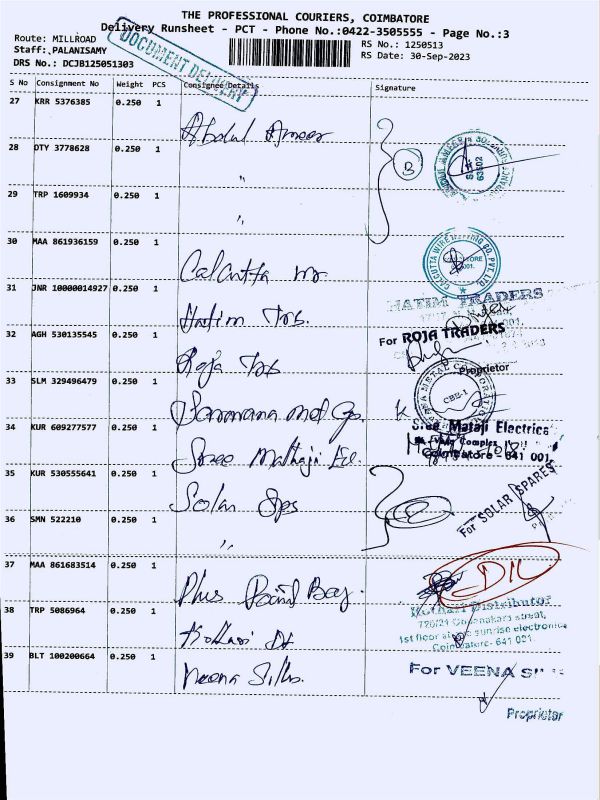 THE PROFESSIONAL COURIERS, COIMBATORE
Delivery Runsheet - PCT - Phone No.:0422-3505555 - Page No.:3
Route: MILLROAD
RS No.: 1250513
Staff: PALANISAMY
RS Date: 30-Sep-2023
DRS No.: DCJB125051303
DOCUMENT DELIVERY
S No Consignment No Weight PCS Consignee Details Signature
27 KRR 5376385 0.250 1
Abdul Ameer
28 DTY 3778628 0.250 1
"
B
29 TRP 1609934 0.250 1
"
30 MAA 861936159 0.250 1
Calcutta
31 JNR 10000014927 0.250 1
HATIM TRADERS
Hatim Trs.
32 AGH 530135545 0.250 1
For ROJA TRADERS
Roja Trs
Proprietor
33 SLM 329496479 0.250 1
CBE-1
34 KUR 609277577 0.250 1
Sree Mataji Electrics
Complex
Coimbatore - 641 001.
Sree Mathaji Ele.
35 KUR 530555641 0.250 1
Solar Sps
For SOLAR SPARES
36 SMN 522210 0.250 1
"
37 MAA 861683514 0.250 1
Plus Point Bag.
38 TRP 5086964 0.250 1
Kothari Distributor
1st floor above sunrise electronics
Coimbatore- 641 001.
Kothari Dt
39 BLT 100200664 0.250 1
For VEENA
Veena Silks.
Proprietor